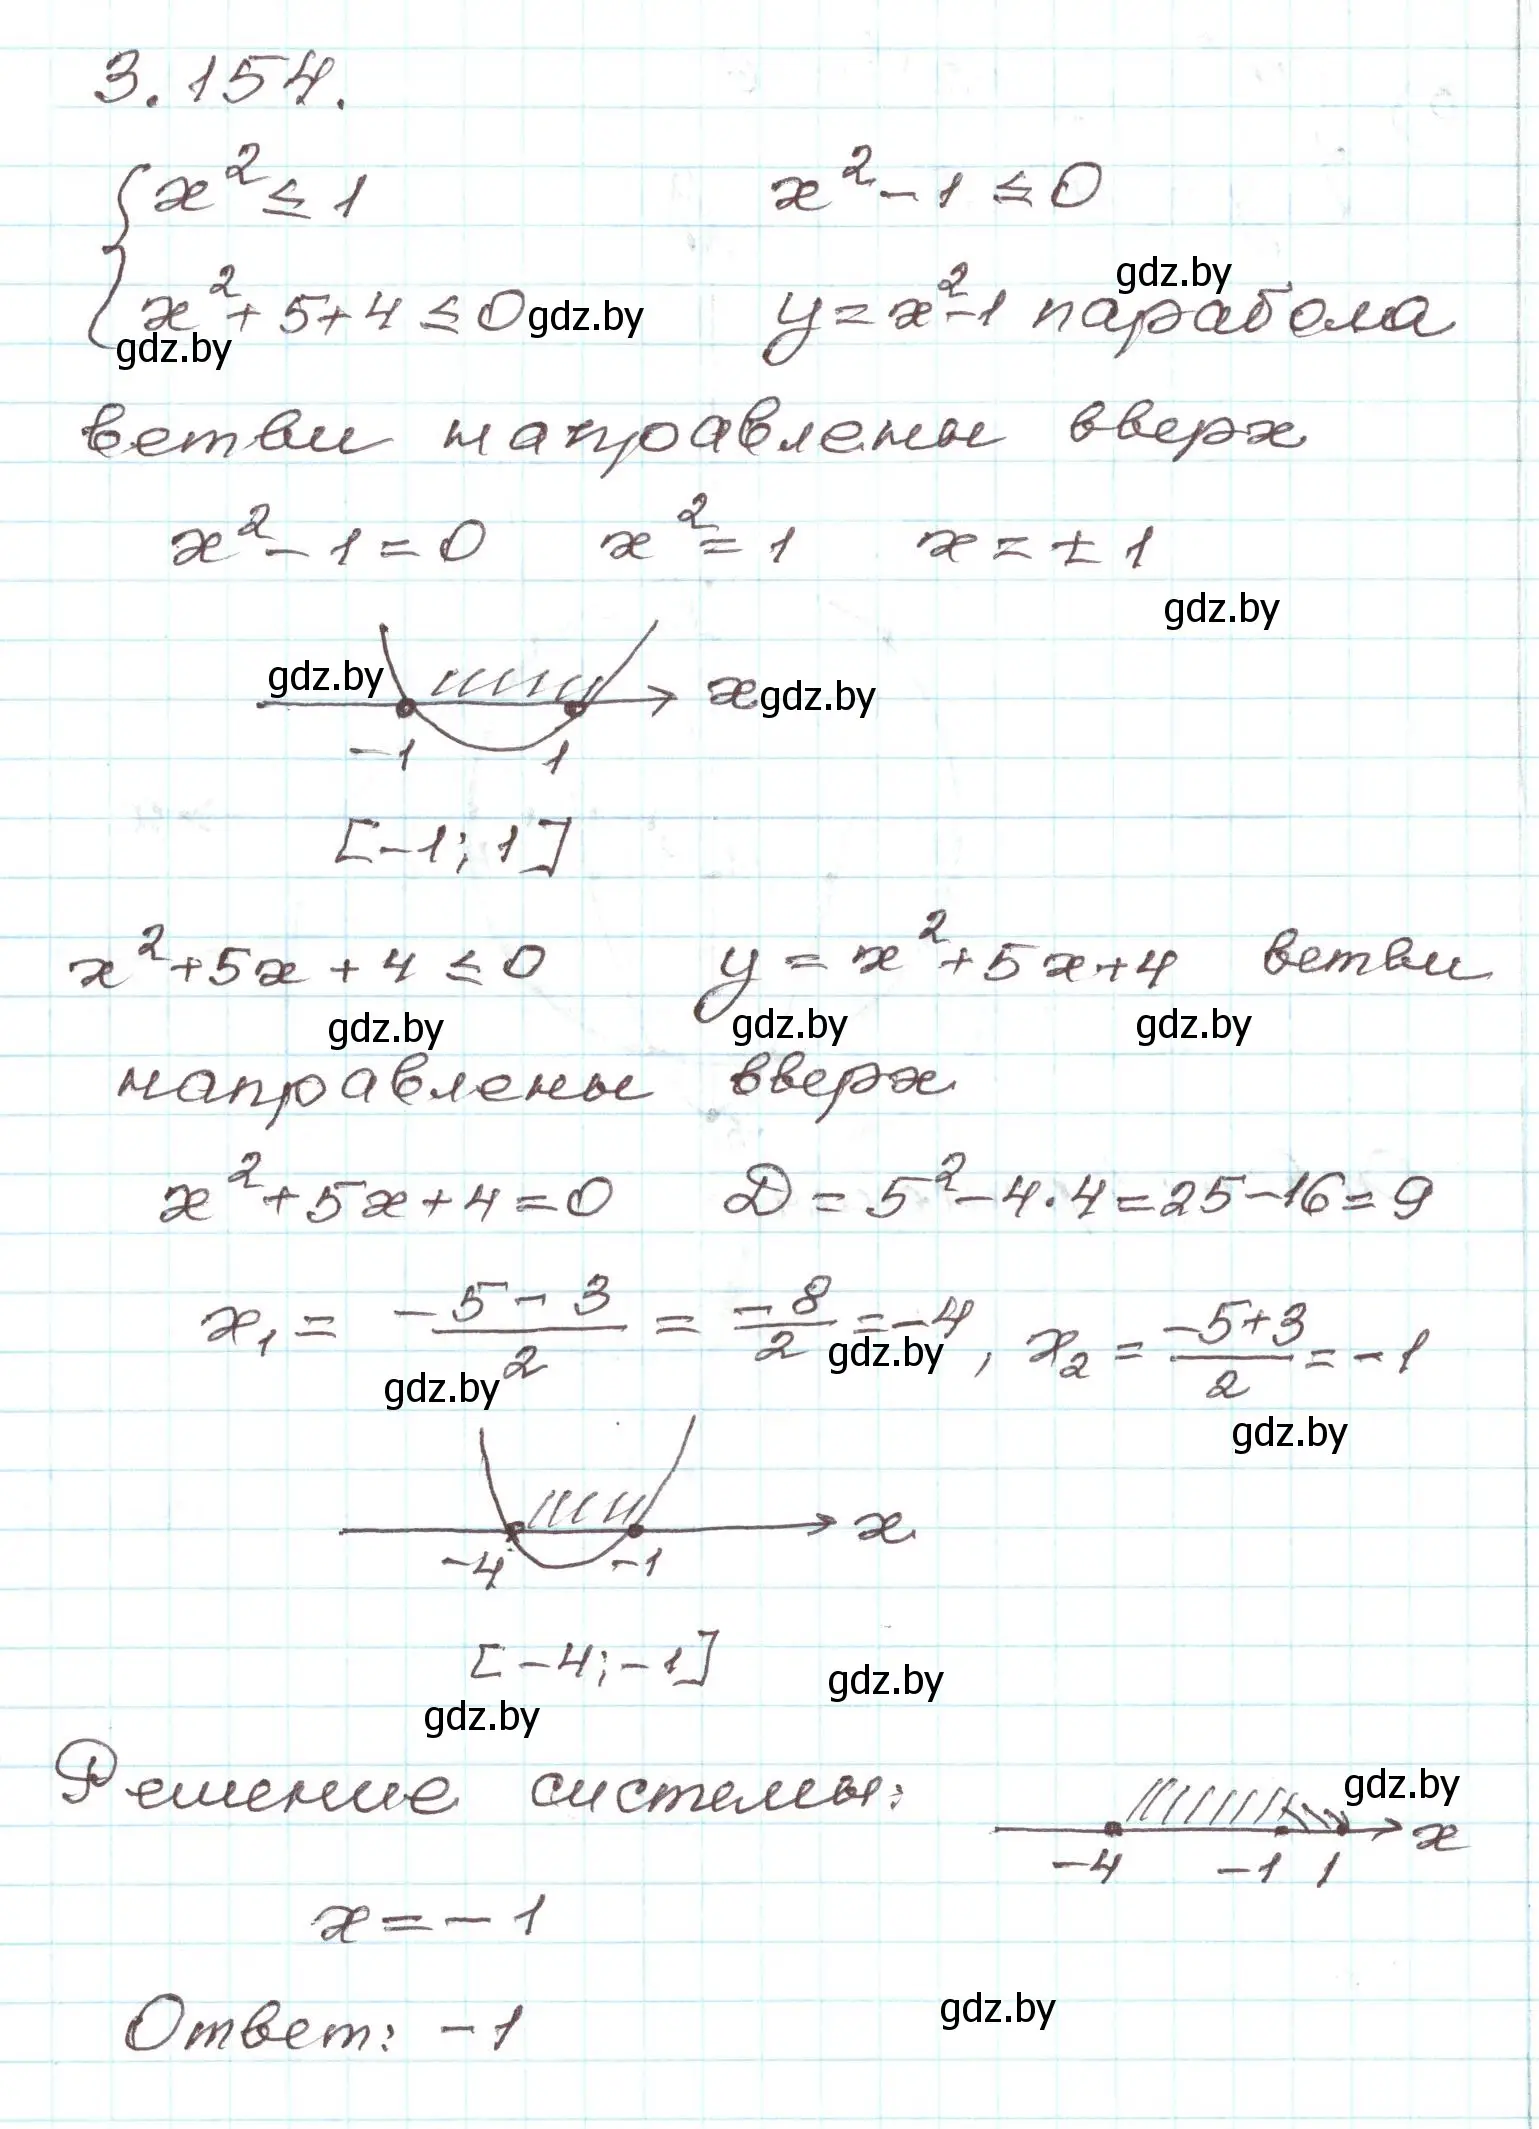 3.154.
{ x² ≤ 1        x² - 1 ≤ 0
gdz.by
x² + 5 + 4 ≤ 0 gdz.by        y = x² - 1 парабола
gdz.by
ветви направлены вверх
x² - 1 = 0    x² = 1    x = ± 1
gdz.by
gdz.by    x gdz.by
-1    1
[-1; 1]
x² + 5x + 4 ≤ 0    y = x² + 5x + 4    ветви
gdz.by    gdz.by    gdz.by
направлены вверх
x² + 5x + 4 = 0    D = 5² - 4·4 = 25 - 16 = 9
x₁ = (-5 - 3)/2 = -8/2 = -4, x₂ = (-5+3)/2 = -1
gdz.by    gdz.by
gdz.by
x
-4    -1
[-4; -1]    gdz.by
gdz.by
Решение системы:    gdz.by
x
-4    -1    1
x = -1
Ответ: -1    gdz.by